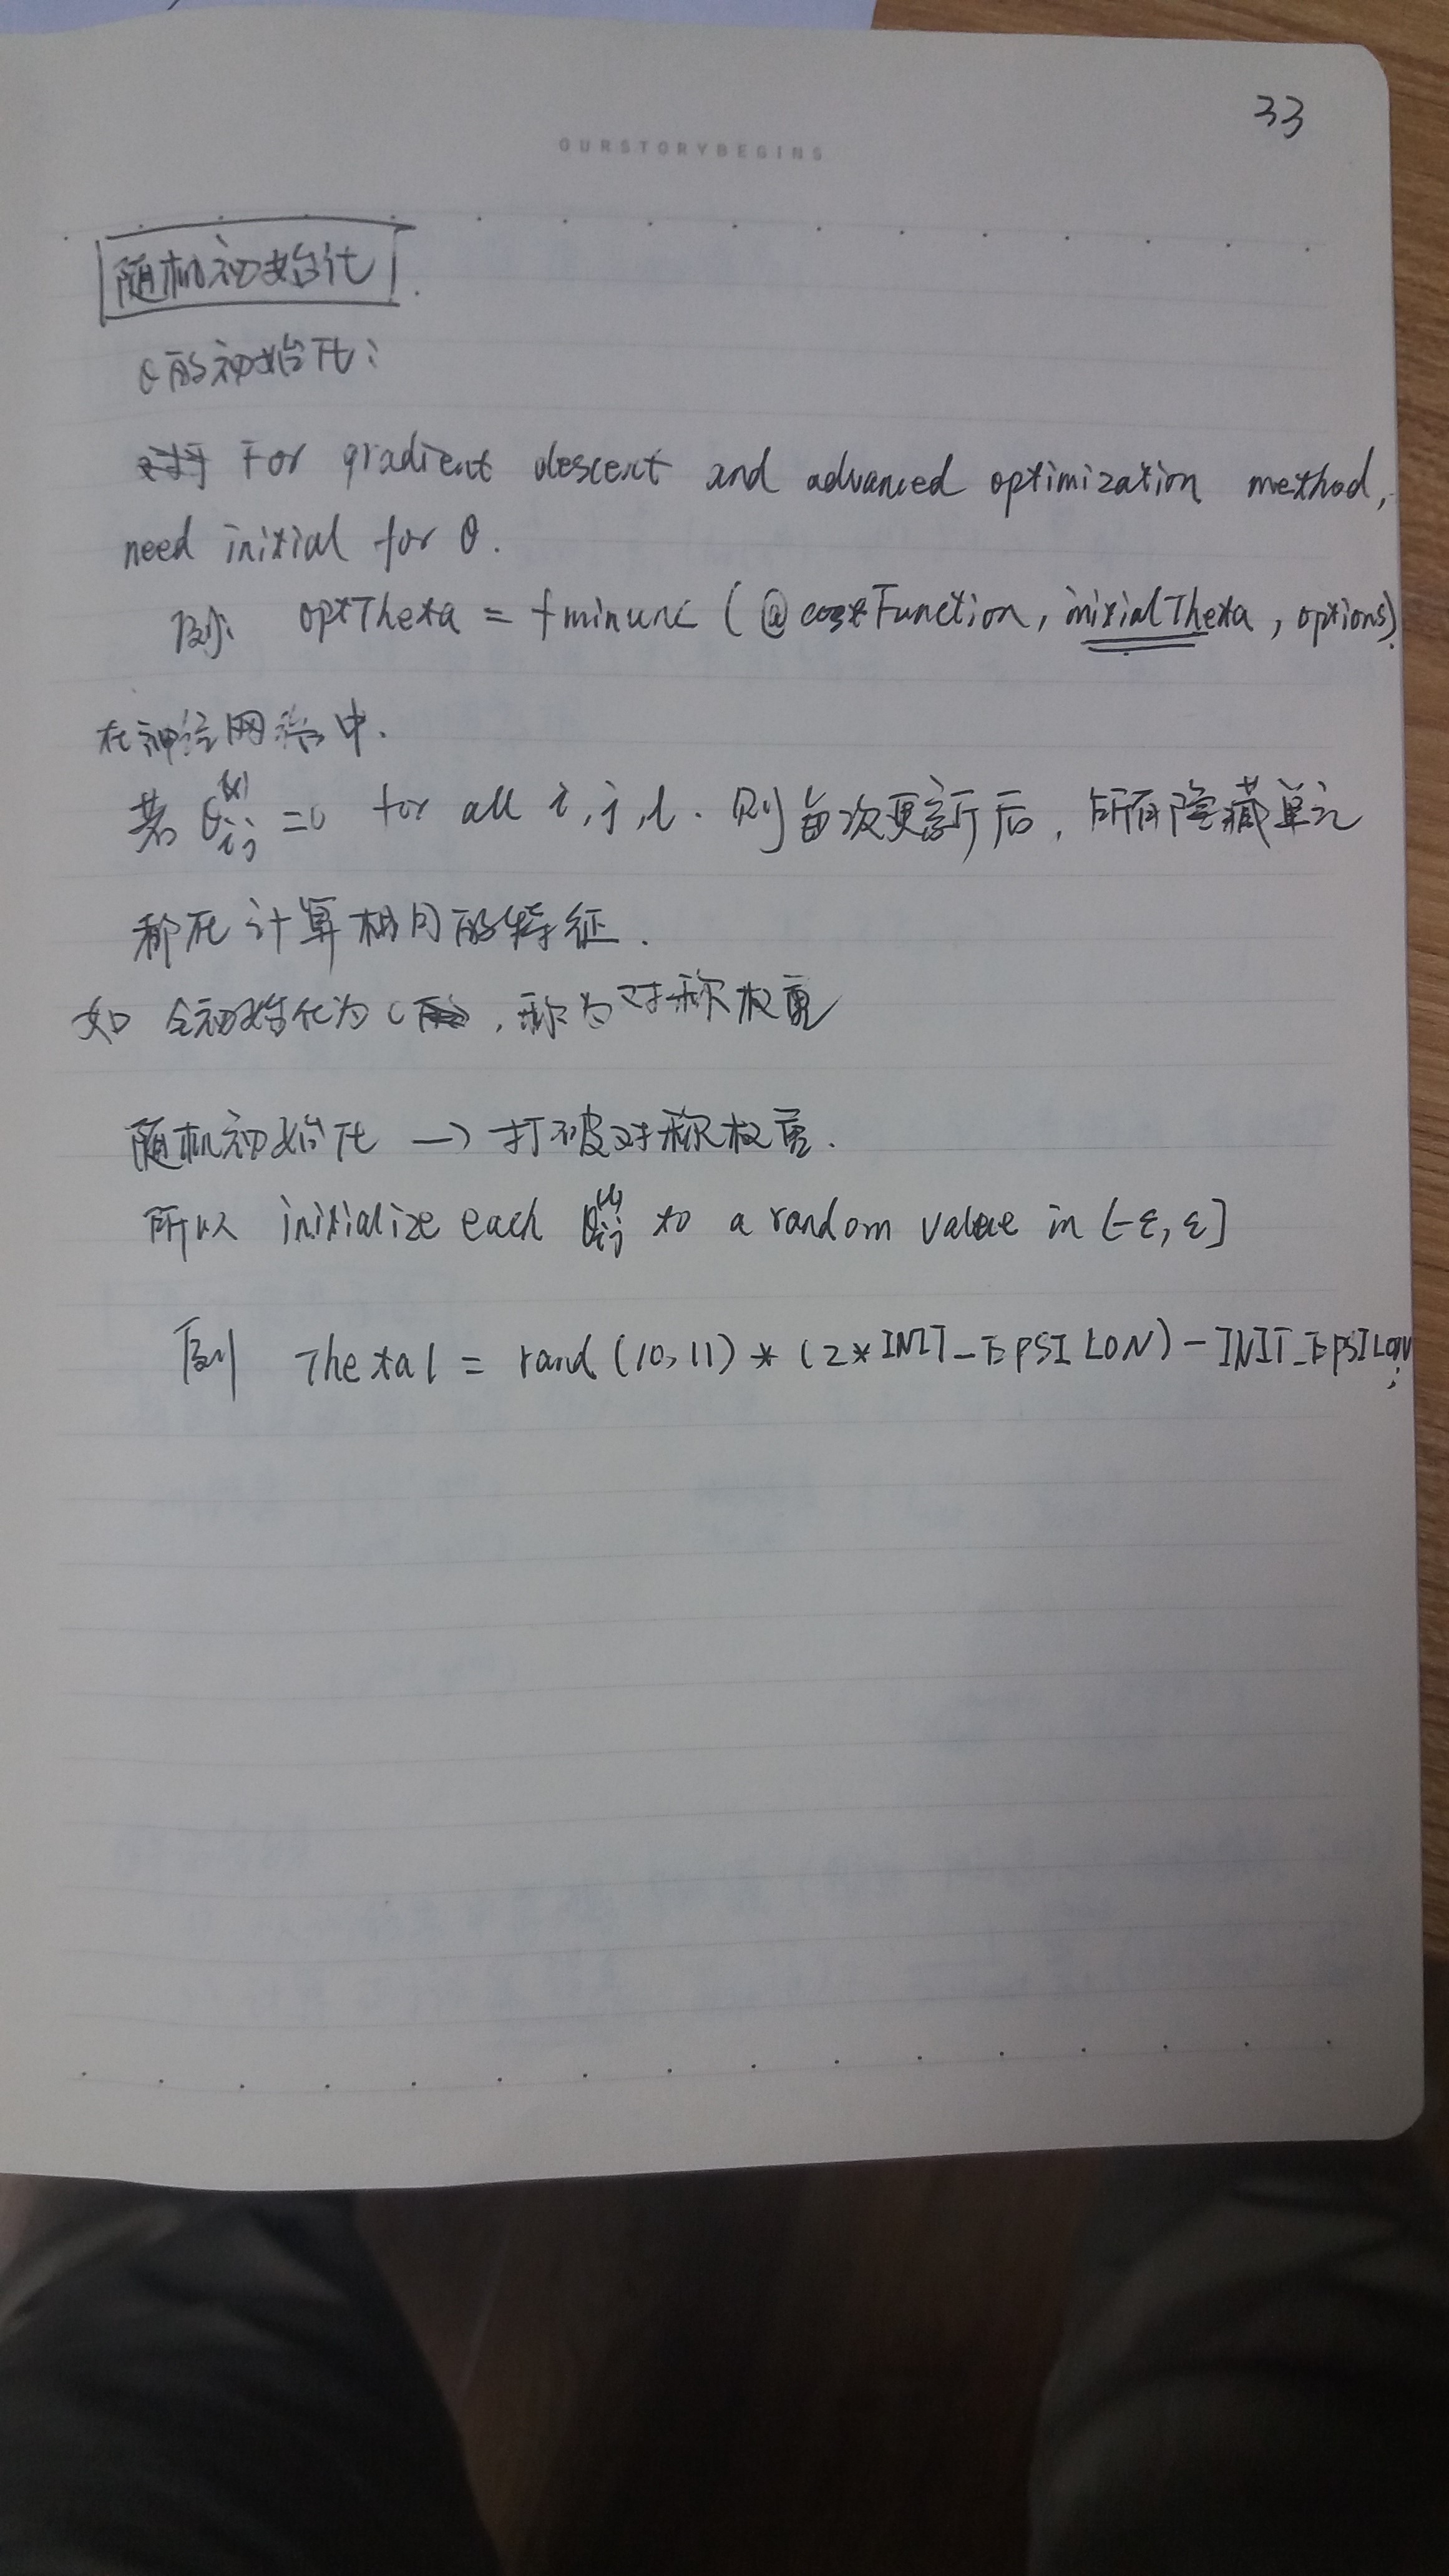 33
OURSTORYBEGINS
随机初始化
θ的初始化:
For gradient descent and advanced optimization method,
need initial for θ.
optTheta = fminunc (@costFunction, initialTheta, options).
在神经网络中.
若 θij^(l) =0 for all i,j,l. 则每次更新后, 所有隐藏单元
都在计算相同的特征.
如 全初始化为0, 称为对称权重
随机初始化 → 打破对称权重.
所以 initialize each θij^(l) to a random value in [-ε, ε]
Theta1 = rand (10,11) * (2*INIT_EPSILON) - INIT_EPSILON;